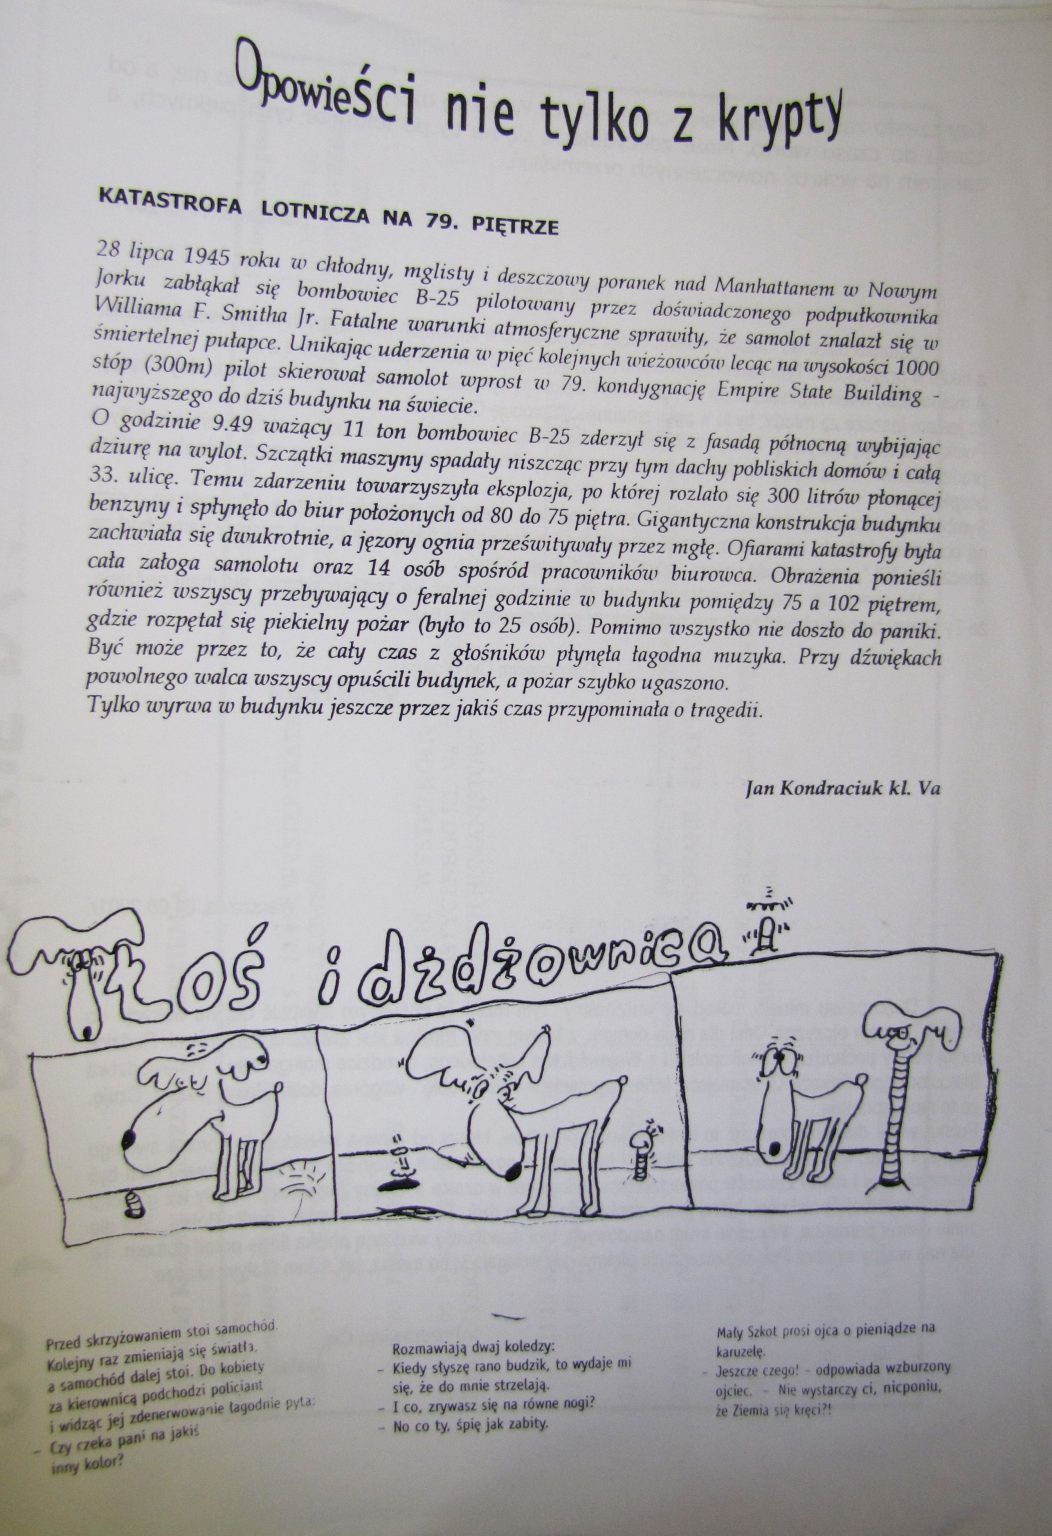 Opowieści nie tylko z krypty
KATASTROFA LOTNICZA NA 79. PIĘTRZE
28 lipca 1945 roku w chłodny, mglisty i deszczowy poranek nad Manhattanem w Nowym
Jorku zabłąkał się bombowiec B-25 pilotowany przez doświadczonego podpułkownika
Williama F. Smitha Jr. Fatalne warunki atmosferyczne sprawiły, że samolot znalazł się w
śmiertelnej pułapce. Unikając uderzenia w pięć kolejnych wieżowców lecąc na wysokości 1000
stóp (300m) pilot skierował samolot wprost w 79. kondygnację Empire State Building -
najwyższego do dziś budynku na świecie.
O godzinie 9.49 ważący 11 ton bombowiec B-25 zderzył się z fasadą północną wybijając
dziurę na wylot. Szczątki maszyny spadały niszcząc przy tym dachy pobliskich domów i całą
33. ulicę. Temu zdarzeniu towarzyszyła eksplozja, po której rozlało się 300 litrów płonącej
benzyny i spłynęło do biur położonych od 80 do 75 piętra. Gigantyczna konstrukcja budynku
zachwiała się dwukrotnie, a jęzory ognia prześwitywały przez mgłę. Ofiarami katastrofy była
cała załoga samolotu oraz 14 osób spośród pracowników biurowca. Obrażenia ponieśli
również wszyscy przebywający o feralnej godzinie w budynku pomiędzy 75 a 102 piętrem,
gdzie rozpętał się piekielny pożar (było to 25 osób). Pomimo wszystko nie doszło do paniki.
Być może przez to, że cały czas z głośników płynęła łagodna muzyka. Przy dźwiękach
powolnego walca wszyscy opuścili budynek, a pożar szybko ugaszono.
Tylko wyrwa w budynku jeszcze przez jakiś czas przypominała o tragedii.
Jan Kondraciuk kl. Va
Łoś i dżdżownica
Przed skrzyżowaniem stoi samochód.
Kolejny raz zmieniają się światła,
a samochód dalej stoi. Do kobiety
za kierownicą podchodzi policjant
i widząc jej zdenerwowanie łagodnie pyta:
- Czy czeka pani na jakiś
inny kolor?
Rozmawiają dwaj koledzy:
- Kiedy słyszę rano budzik, to wydaje mi
się, że do mnie strzelają.
- I co, zrywasz się na równe nogi?
- No co ty, śpię jak zabity.
Mały Szkot prosi ojca o pieniądze na
karuzelę.
- Jeszcze czego! - odpowiada wzburzony
ojciec. - Nie wystarczy ci, nicponiu,
że Ziemia się kręci?!